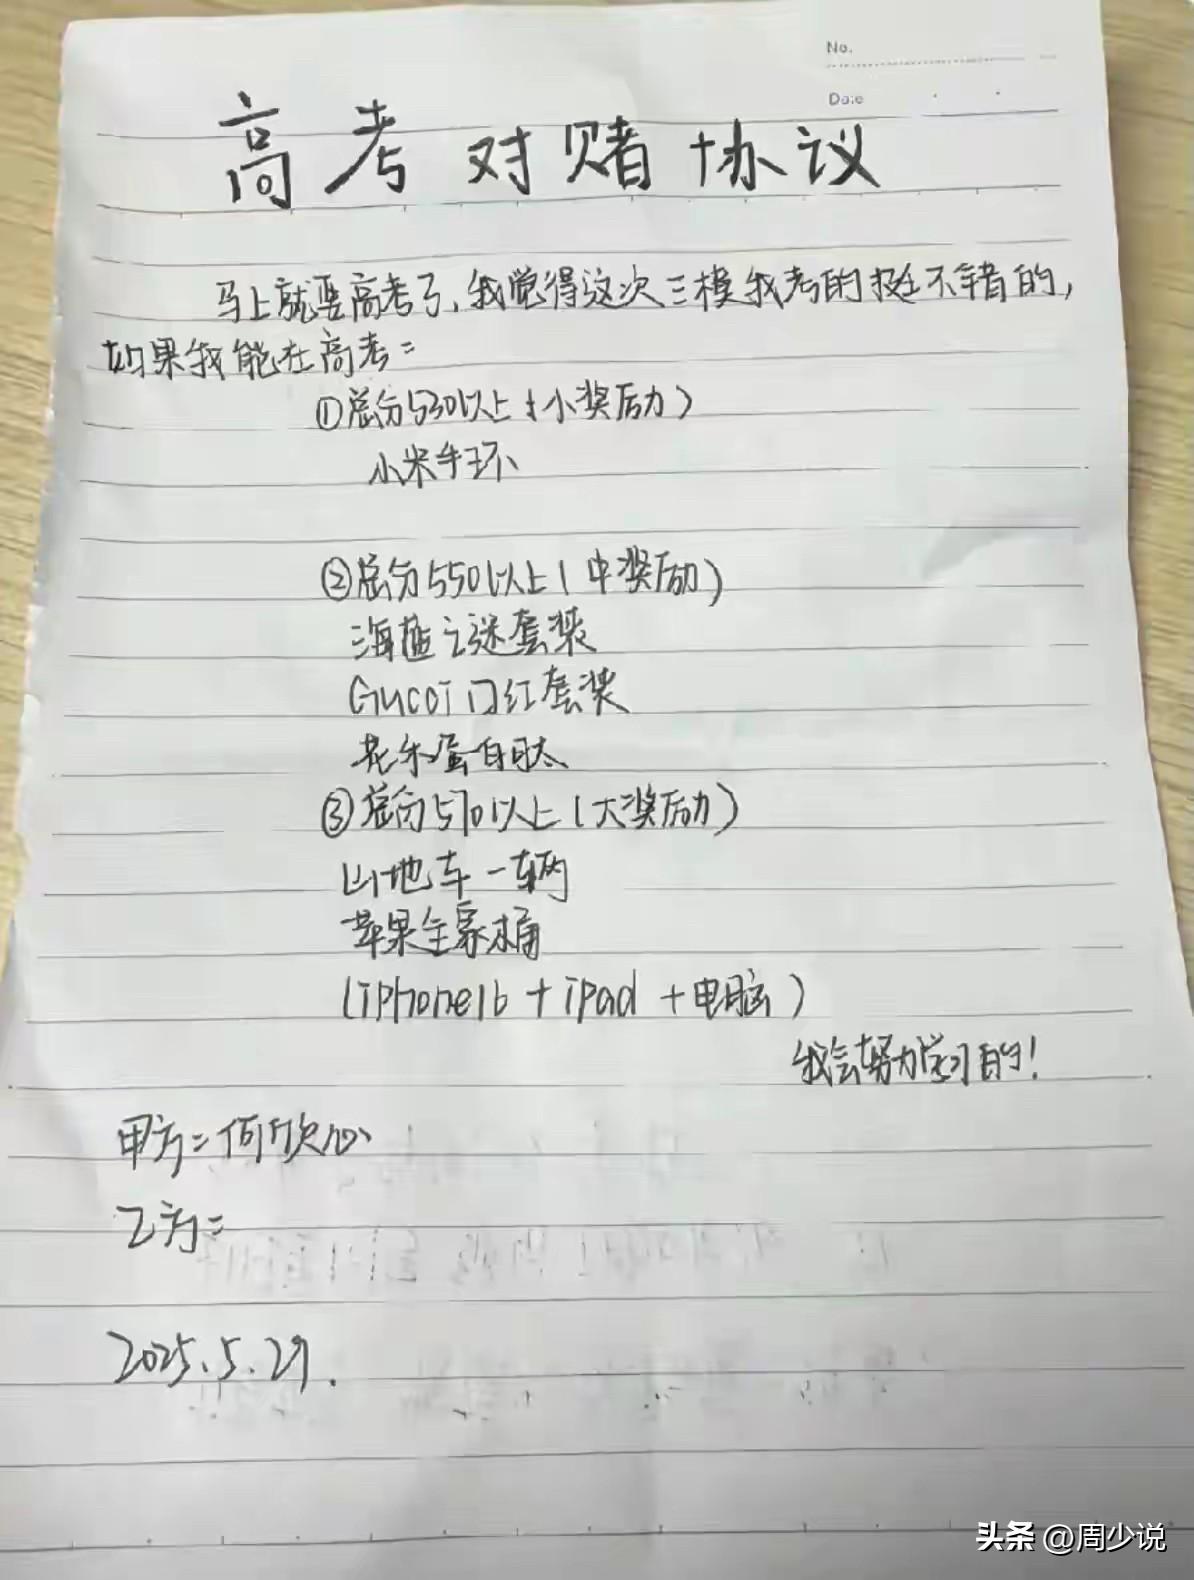 No.
Date
高考对赌协议
马上就要高考了，我觉得这次三模我考的挺不错的，
如果我能在高考：
①总分530以上（小奖励）
小米手环
②总分550以上（中奖励）
海蓝之谜套装
Gucci口红套装
花朵蛋白肽
③总分570以上（大奖励）
山地车一辆
苹果全家桶
（iphone16＋ipad＋电脑）
我会努力学习的！
甲方：何欣心
乙方：
2025.5.29.
头条 @周少说